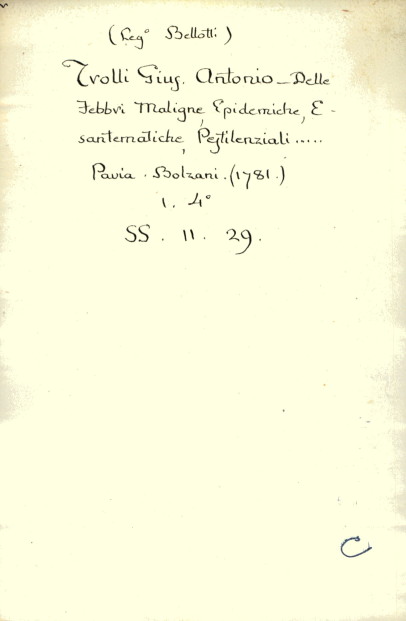 (Leg° Bellotti)
Trolli Gius. Antonio - Delle
Febbri Maligne, Epidemiche, E-
santematiche, Pestilenziali.....
Pavia. Bolzani. (1781.)
1. 4°
SS. 11. 29.
C